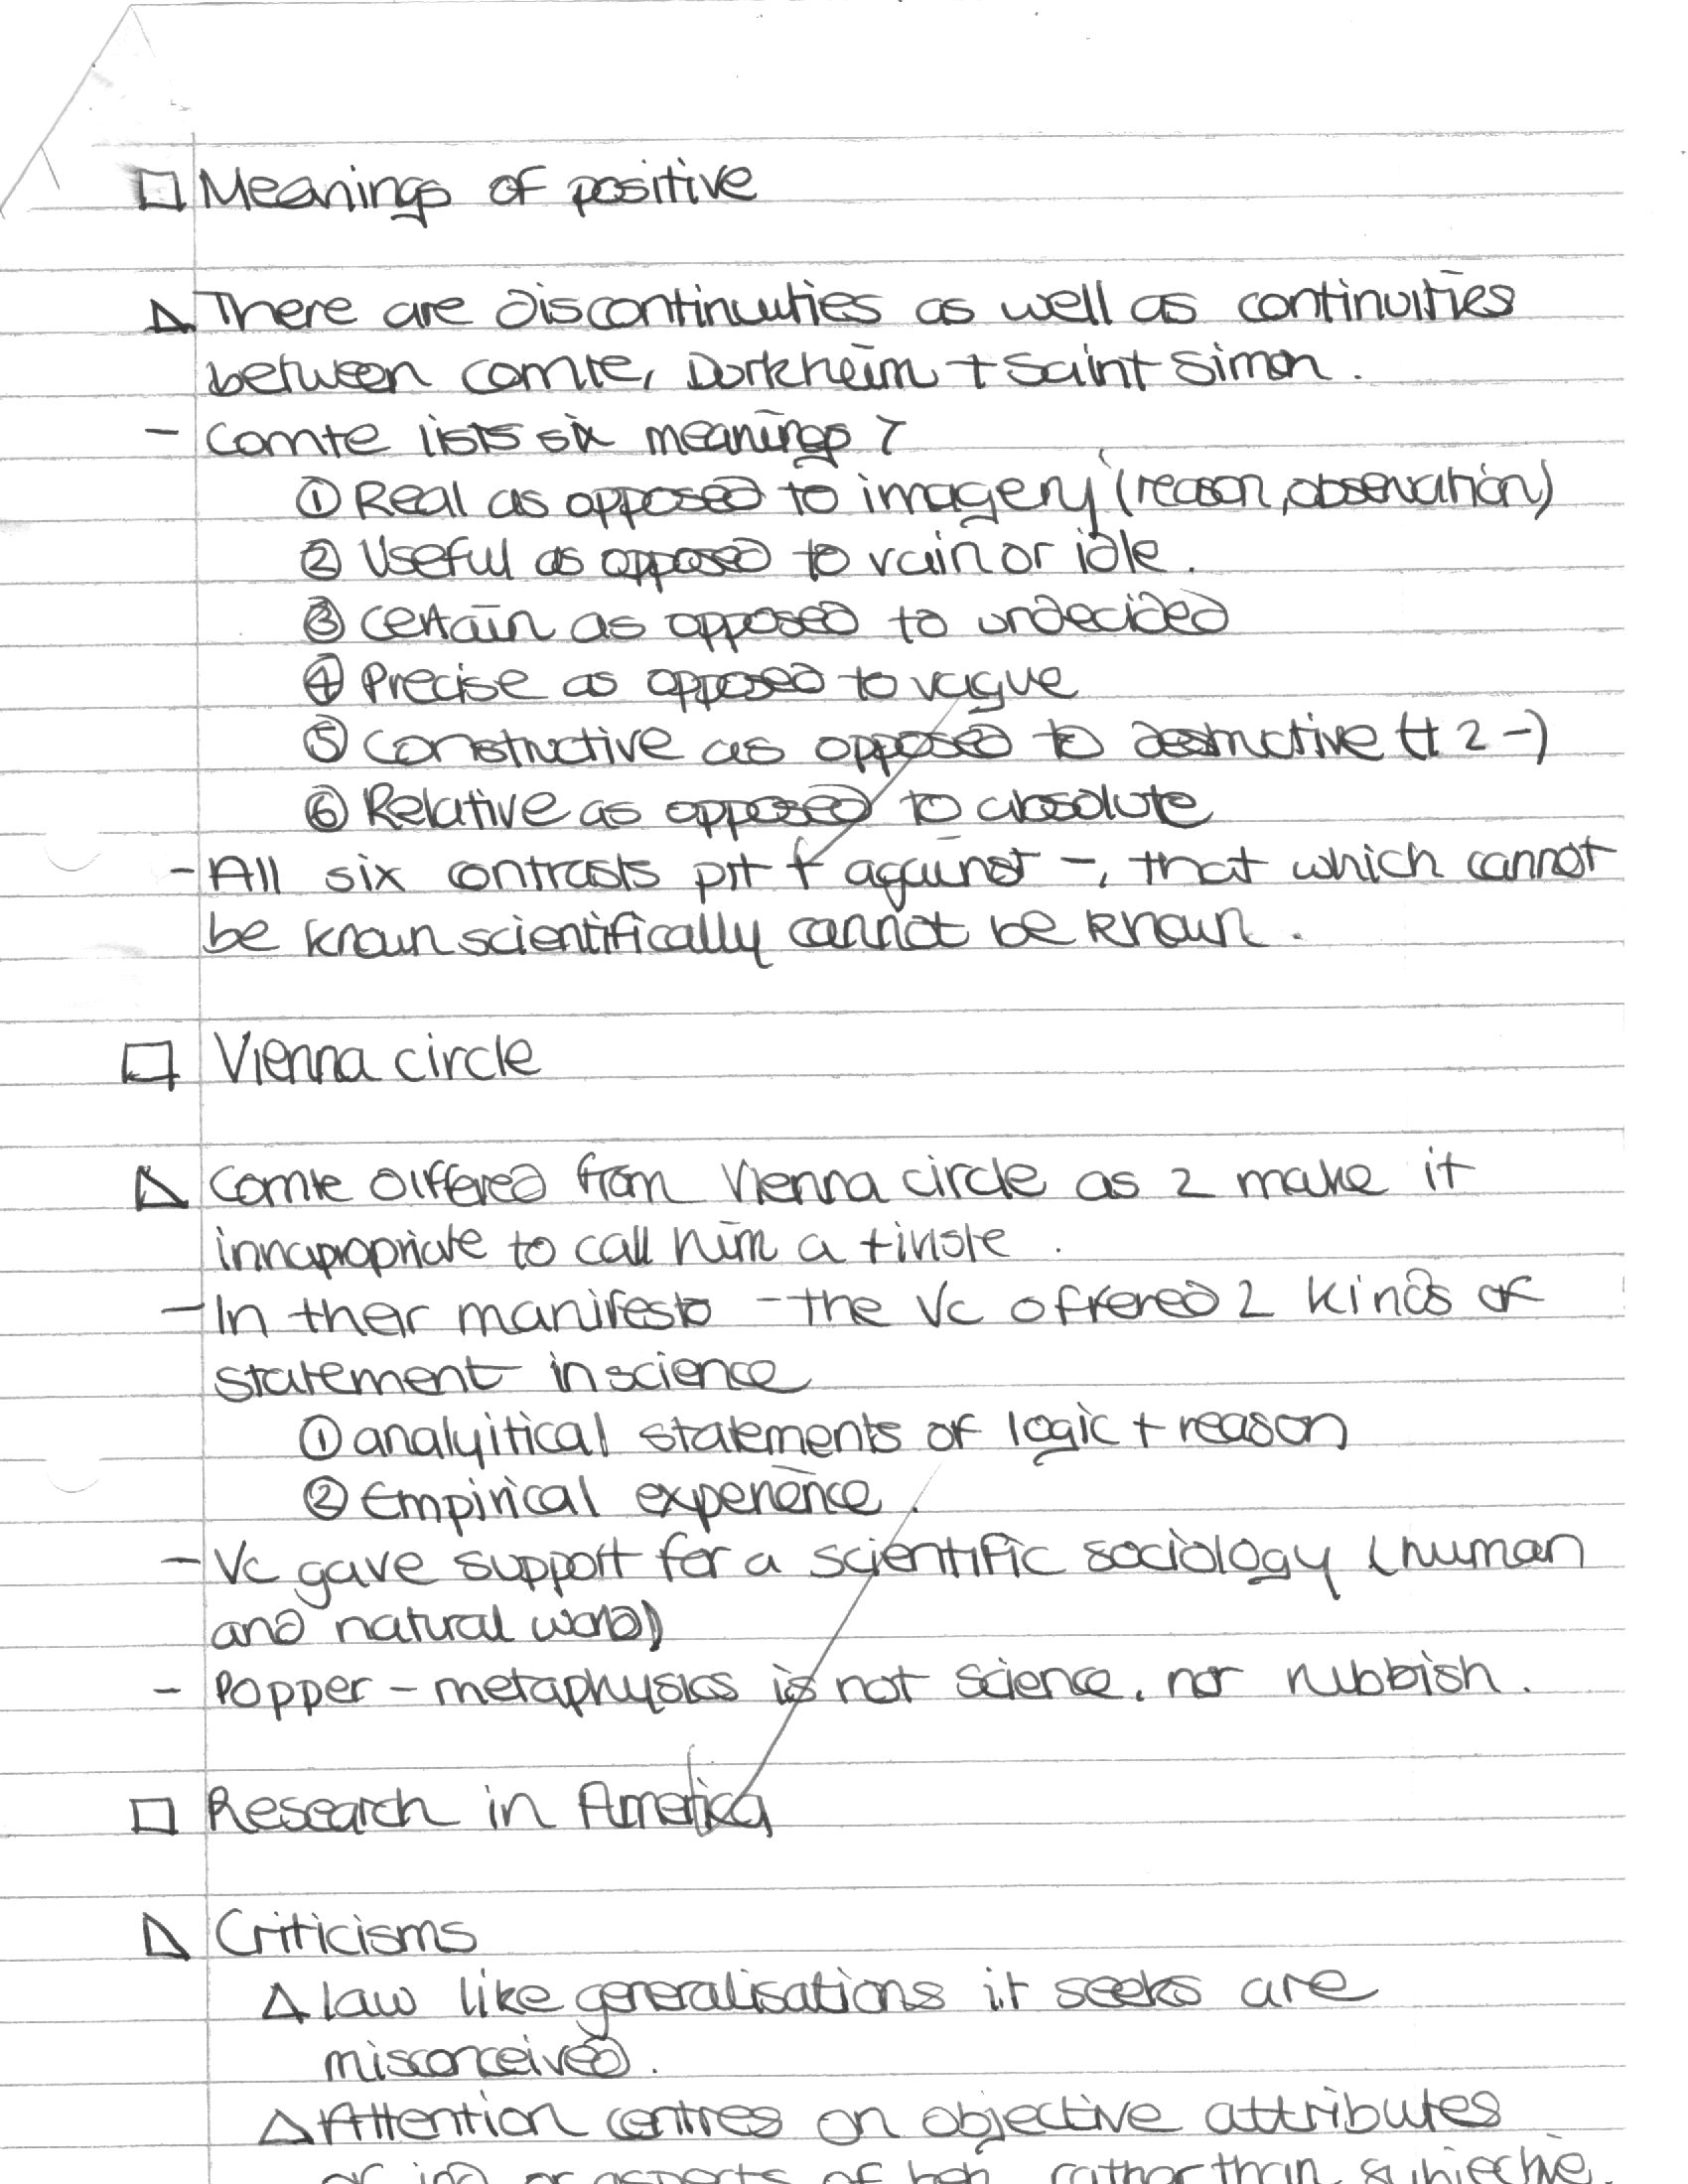 □ Meanings of positive
△ There are discontinuities as well as continuities
between comte, Durkheim + Saint Simon.
- Comte lists six meanings ?
① Real as opposed to imagery (reason, observation)
② Useful as opposed to vain or idle.
③ certain as opposed to undecided
④ Precise as opposed to vague
⑤ Constructive as opposed to destructive (+ 2 -)
⑥ Relative as opposed to absolute
- All six contrasts pit + against -, that which cannot
be known scientifically cannot be known.
□ Vienna circle
△ Comte differed from Vienna circle as 2 make it
innapropriate to call him a +iviste.
- In their manifesto - the Vc offered 2 kinds of
statement in science
① analyitical statements of logic + reason
② Empirical experience.
- Vc gave support for a scientific sociology (human
and natural world)
- Popper - metaphysics is not science, nor rubbish.
□ Research in America
△ Criticisms
△ law like generalisations it seeks are
misconceived.
△ Attention centres on objective attributes
of ind or aspects of beh, rather than subjective